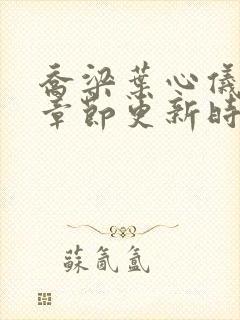 乔梁葉心儀
章節更新時
蘇氤氳